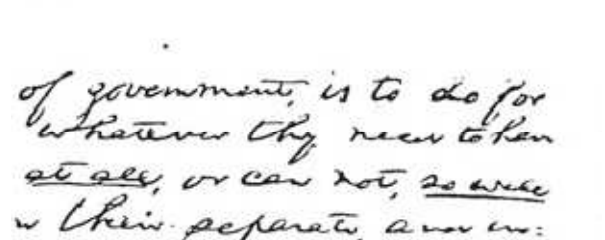 of government, is to do for
whatever they need to have
at all, or can not, so well
n their separate, and in-